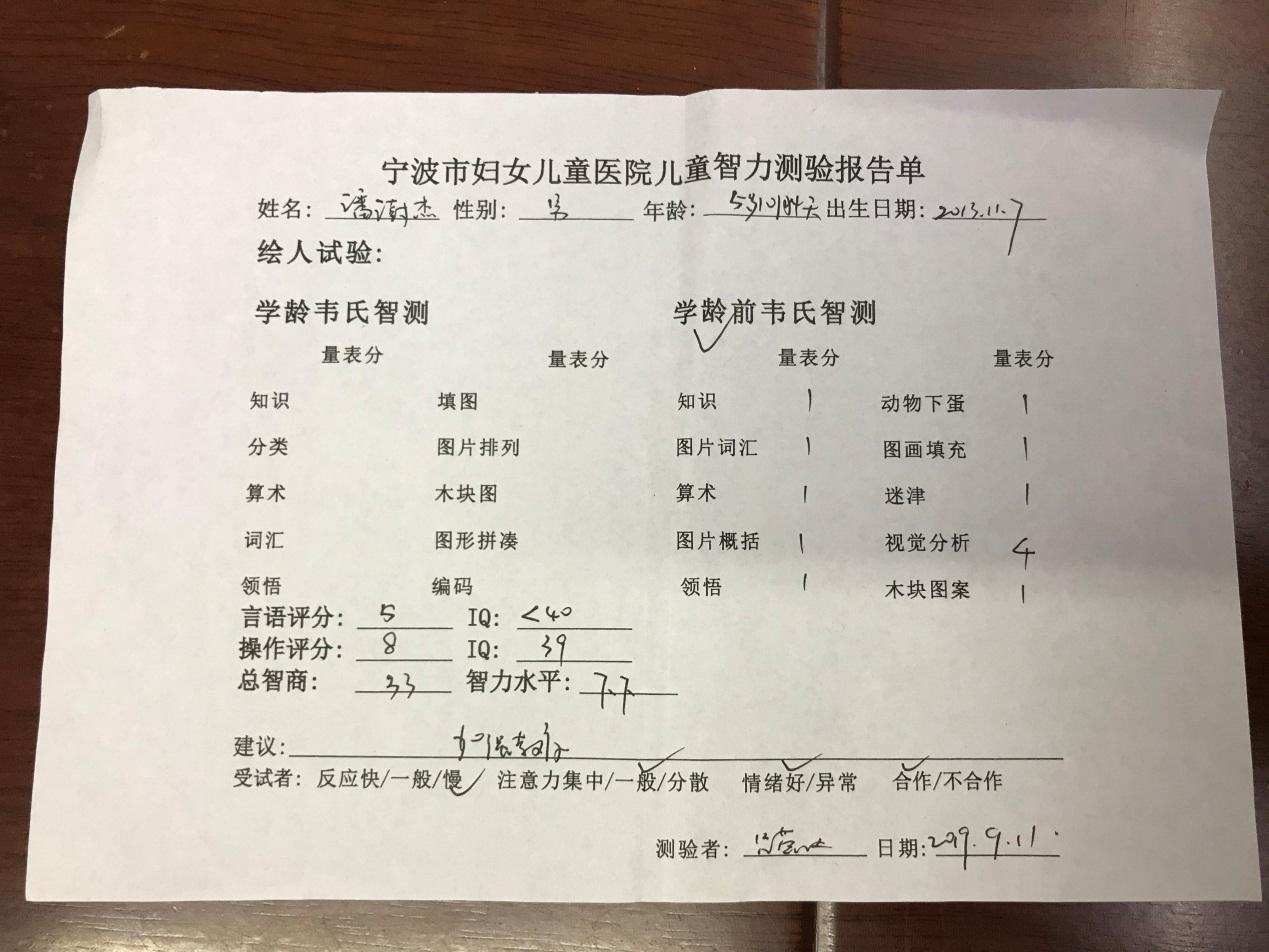 宁波市妇女儿童医院儿童智力测验报告单
姓名: 潘谢杰 性别: 男 年龄: 5岁10月4天 出生日期: 2013.11.7
绘人试验:
学龄韦氏智测 学龄前韦氏智测 ✓
量表分 量表分 量表分 量表分
知识 填图 知识 1 动物下蛋 1
分类 图片排列 图片词汇 1 图画填充 1
算术 木块图 算术 1 迷津 1
词汇 图形拼凑 图片概括 1 视觉分析 4
领悟 编码 领悟 1 木块图案 1
言语评分: 5 IQ: <40
操作评分: 8 IQ: 39
总智商: 33 智力水平: 下下
建议: 加强教育
受试者: 反应快/一般/慢✓ 注意力集中/一般✓/分散 情绪好✓/异常 合作✓/不合作
测验者: 日期: 2019.9.11.